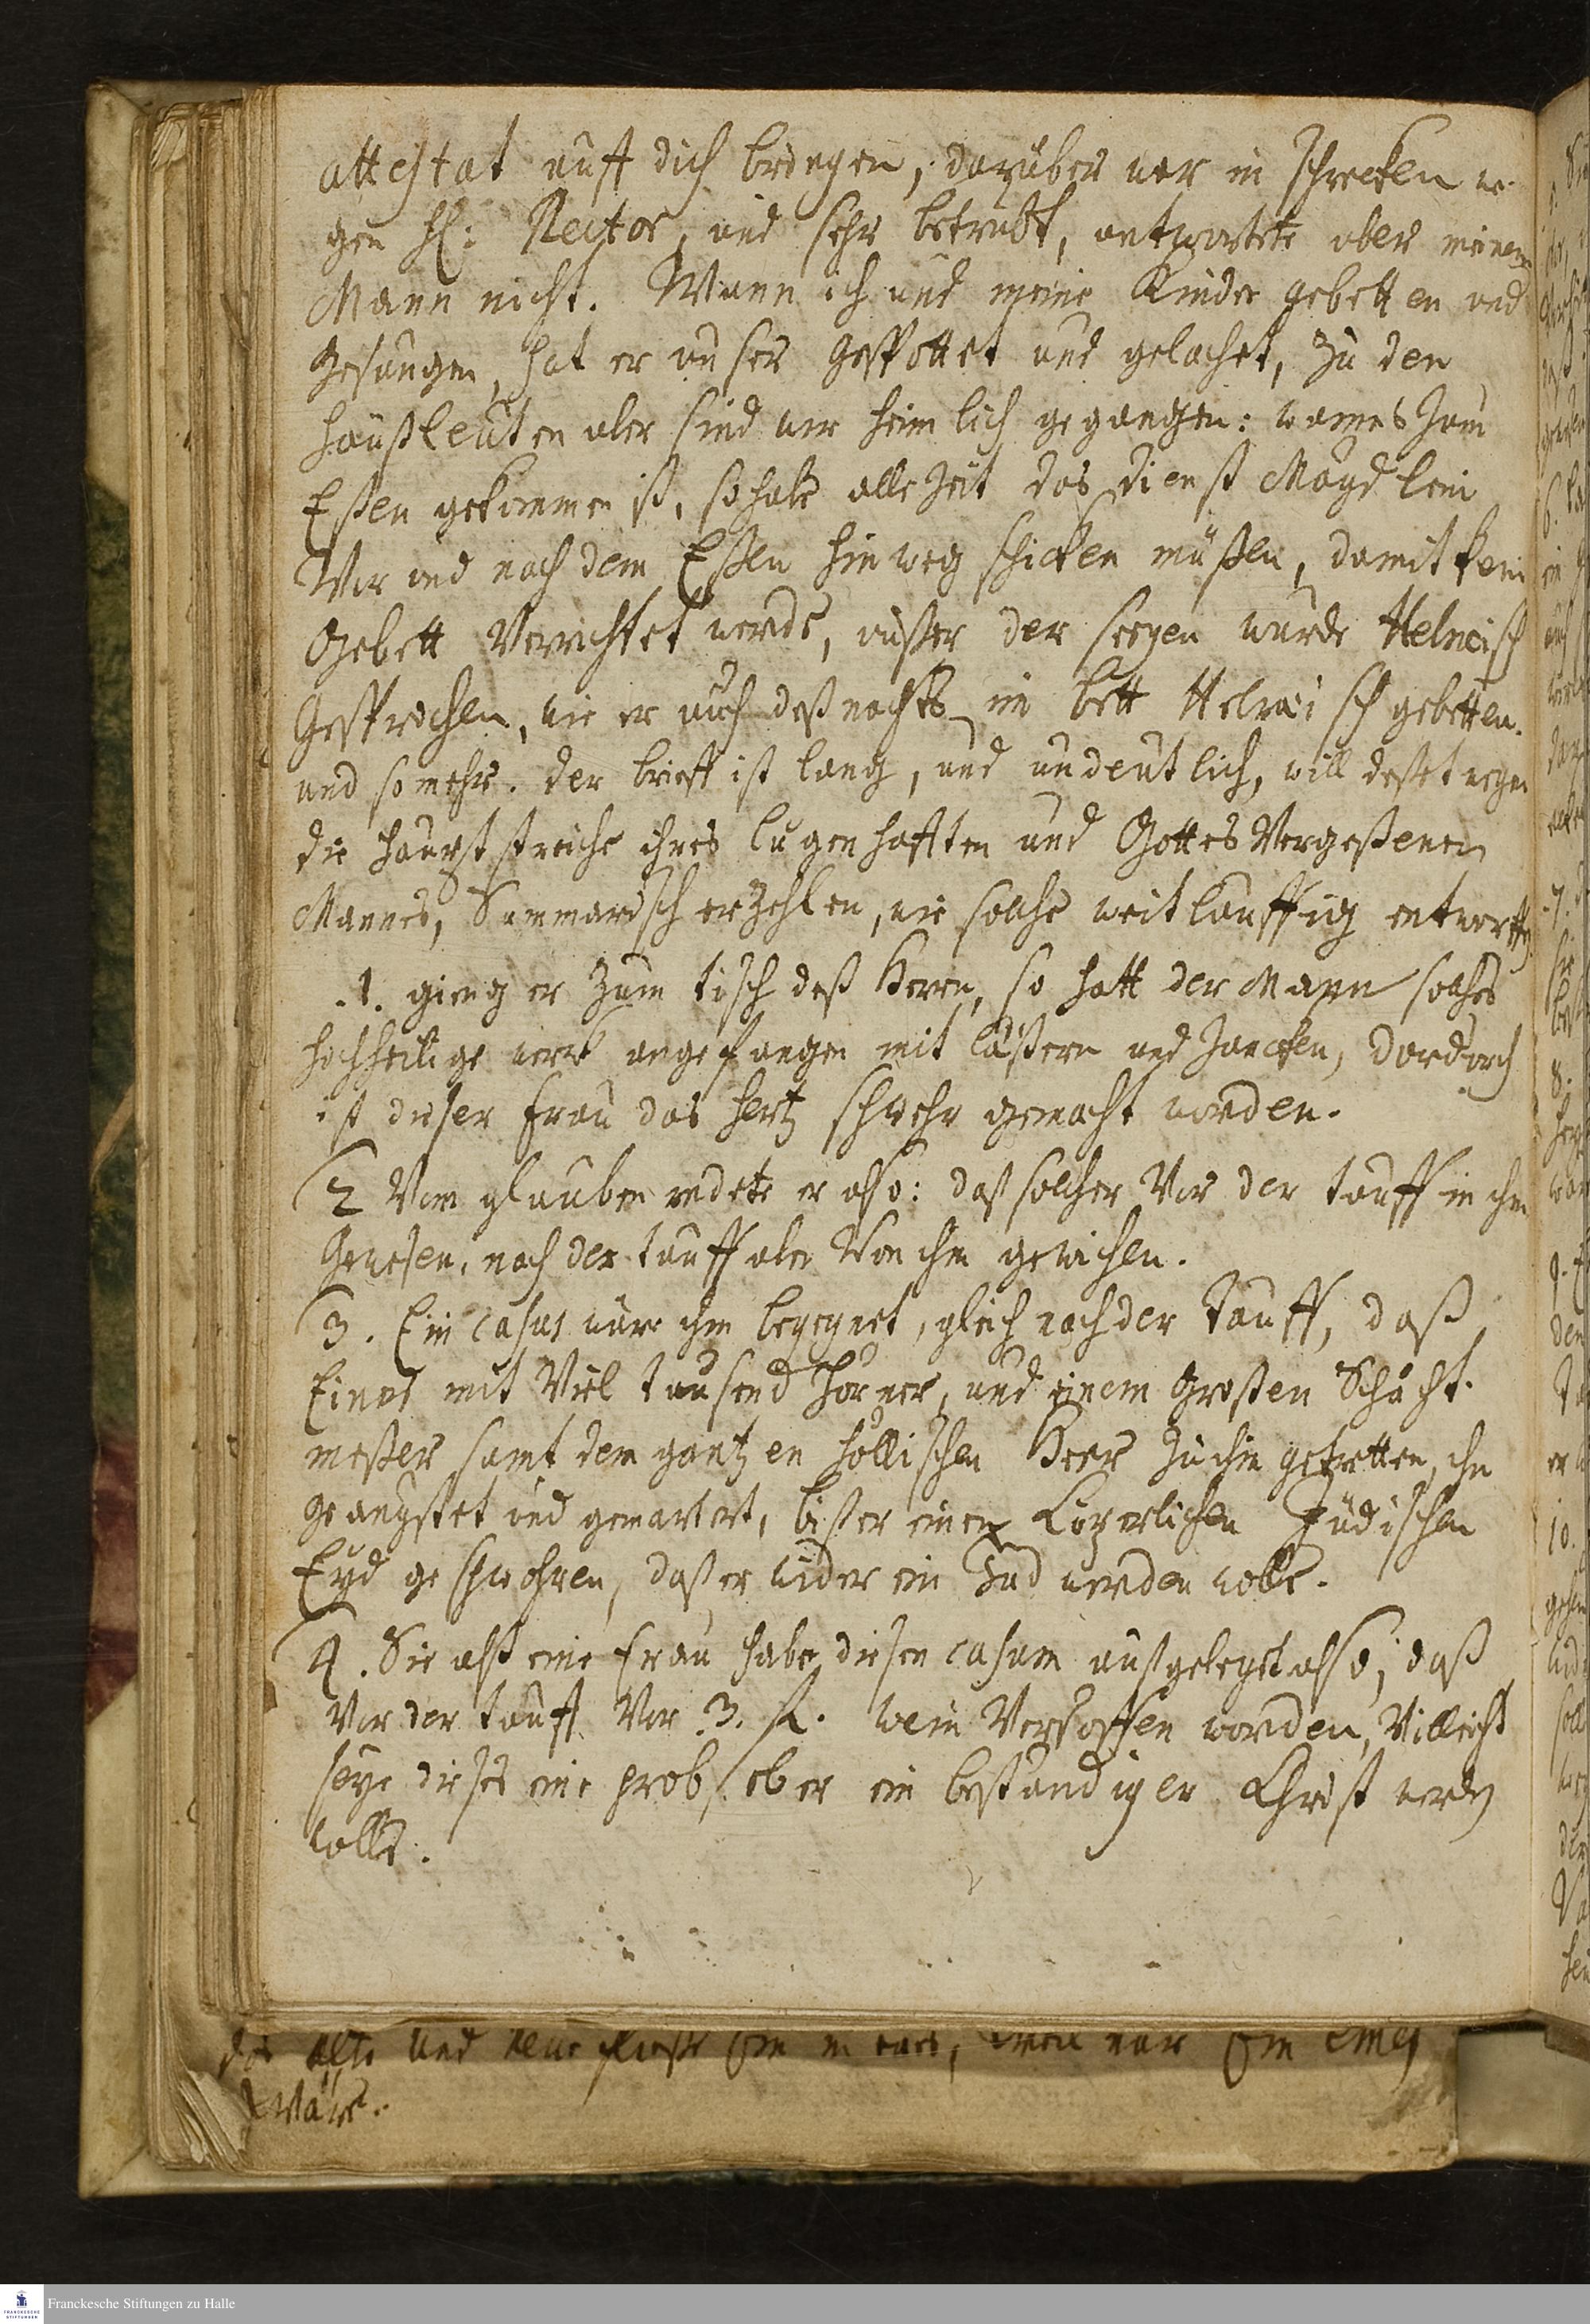 attestat auff dich bringen, darüber war in schrecken we-
gen H: Rector, und sehr betrübt, antwortete aber meinem
Mann nicht. Wann ich und meine Kinder gebetten und
Gesungen, hat er unser Gespottet und gelachet, zu den
haußleuten aber sind wir heimlich gegangen: wanns zum
Eßen gekommen ist, so habe alle Zeit das dienst Mägdlein
Vor und nach dem Eßen hinweg schicken müßen, damit kein
Gebett Verrichtet werde, außer der seegen wurde Hebreisch
Gesprochen, wie er auch deß nachts im bett Hebreisch gebetten.
und so mehr. der brieff ist lang, und undeutlich, will deßetwegen
die haupt streiche ihres lugenhafften und Gottes Vergeßenen
Mannes, Summarisch erzehlen, wie solche weitläuffig
.1. gieng er zum tisch deß Herrn, so hatt der Mann solches
hochheilige werk angefangen mit lästern und Zancken, dardurch
ist dieser frau das hertz schwehr gemacht worden.
2 Vom glauben redete er also: daß solcher Vor der tauff in ihm
Gewesen, nach der tauff aber Von ihm gewichen.
3. Ein casus wäre ihm begegnet, gleich nach der tauff, daß
Einer mit Viel tausend hörner, und einem Großen Schächt-
meßer samt dem gantzen höllischen Heer zu ihm getretten, ihn
Geängstet und gemartert, biß er einen Cörperlichen Jüdischen
Eyd geschwohren, daß er wider ein Jud werden wolle.
4. Sie alß eine frau habe diesen casum außgelegt also, daß
Vor der tauff Vor 3. fl. wein Versoffen worden, Villeicht
seye dieses eine prob, ob er ein beständiger Christ werden
wolle.
das alte und neue in eines, weil nur ein einig
wäre.
Franckesche Stiftungen zu Halle